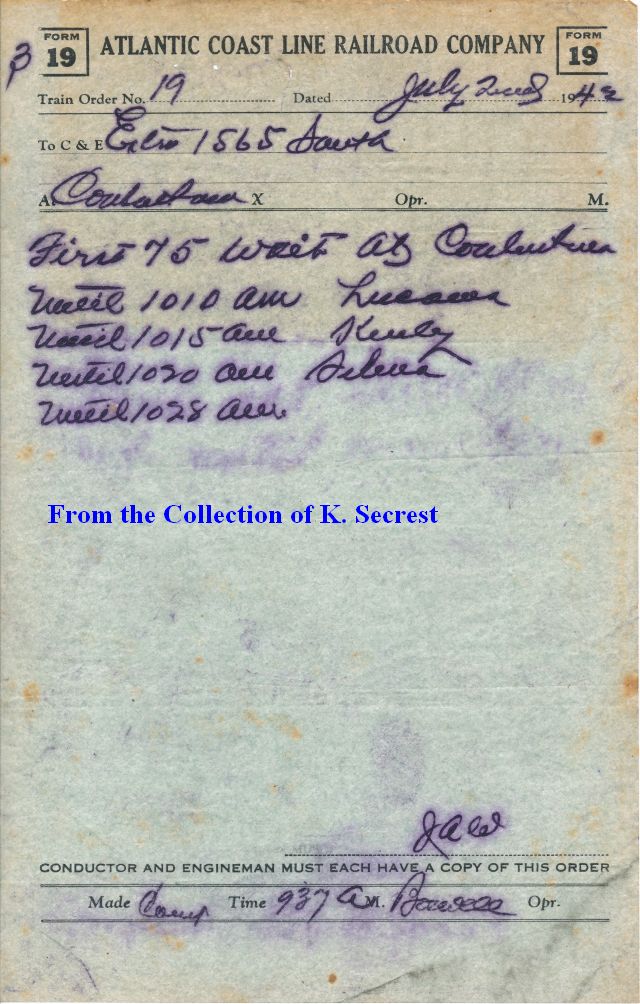 3
FORM 19 ATLANTIC COAST LINE RAILROAD COMPANY FORM 19
Train Order No. 19 Dated July 2nd 1942
To C & E Extra 1565 South
At X Opr. M.
First 75 wait at
until 1010 am Lucama
until 1015 am Kenly
until 1020 am Selma
until 1028 am
From the Collection of K. Secrest
JAW
CONDUCTOR AND ENGINEMAN MUST EACH HAVE A COPY OF THIS ORDER
Made Comp Time 937 A M. Opr.